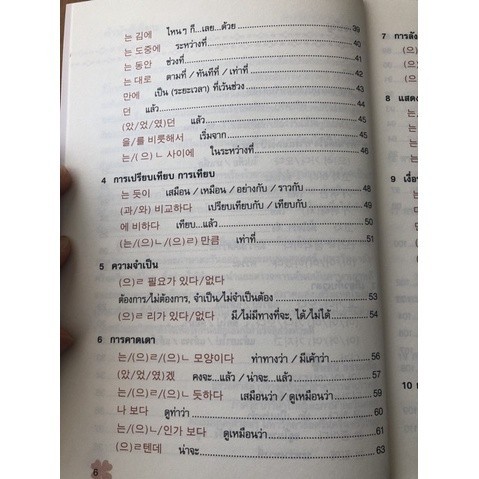 는 김에 ไหนๆ ก็...เลย...ด้วย 39
는 도중에 ระหว่างที่ 40
는 동안 ช่วงที่ 41
는 대로 ตามที่ / ทันทีที่ / เท่าที่ 42
만에 เป็น (ระยะเวลา) ที่เว้นช่วง 43
던 แล้ว 44
(았/었/였)던 แล้ว 45
을/를 비롯해서 เริ่มจาก 45
는/(으)ㄴ 사이에 ในระหว่างที่ 46
4 การเปรียบเทียบ การเทียบ
는 듯이 เสมือน / เหมือน / อย่างกับ / ราวกับ 48
(과/와) 비교하다 เปรียบเทียบกับ / เทียบกับ 49
에 비하다 เทียบ...แล้ว 50
(는/(으)ㄴ/(으)ㄹ) 만큼 เท่าที่ 51
5 ความจำเป็น
(으)ㄹ 필요가 있다/없다
ต้องการ/ไม่ต้องการ, จำเป็น/ไม่จำเป็นต้อง 53
(으)ㄹ 리가 있다/없다 มี/ไม่มีทางที่จะ, ได้/ไม่ได้ 54
6 การคาดเดา
는/(으)ㄹ/(으)ㄴ 모양이다 ท่าทางว่า / มีเค้าว่า 56
(았/었/였)겠 คงจะ...แล้ว / น่าจะ...แล้ว 57
는/(으)ㄹ/(으)ㄴ 듯하다 เสมือนว่า / ดูเหมือนว่า 59
나 보다 ดูท่าว่า 60
는/(으)ㄴ/인가 보다 ดูเหมือนว่า 61
(으)ㄹ텐데 น่าจะ 63
6
7 การลัง
8 แสดง
9 เงื่อ
10